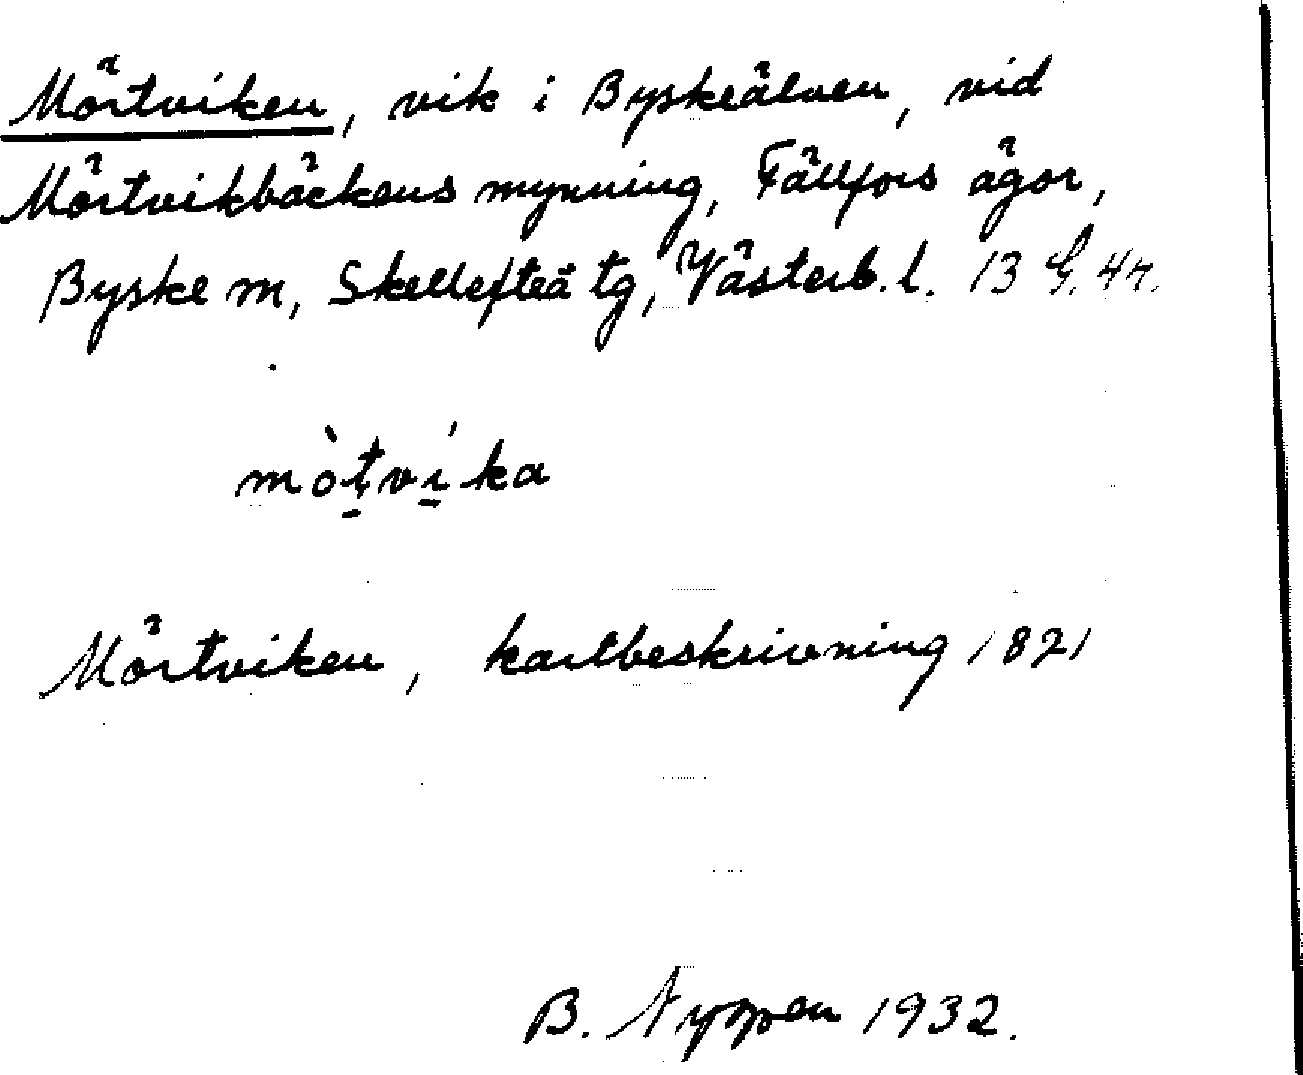 Mörtviken, vik i Byskeälven, vid
Mörtvikbäckens mynning, Fällfors ägor,
Byske sn, Skellefteå tg, Västerb. l. 13 G. 4r.
mò̱tví̱ka
Mörtviken, kartbeskrivning 1821
B. Nyppen 1932.